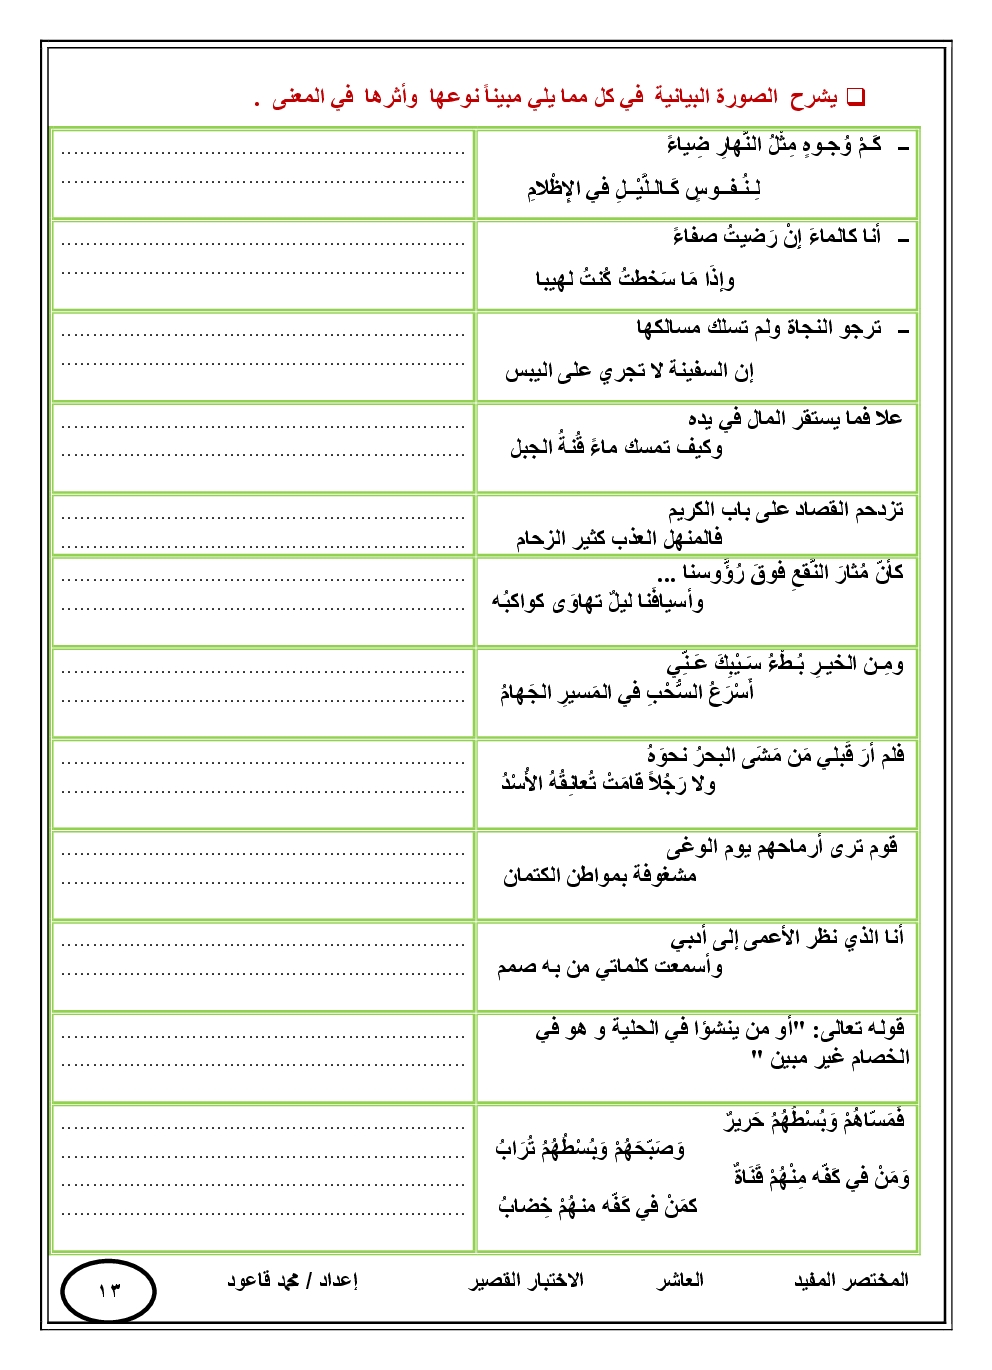 ❑ يشرح الصورة البيانية في كل مما يلي مبيناً نوعها وأثرها في المعنى .
– كَـمْ وُجـوهٍ مِثْلُ النَّهارِ ضِياءً
لِـنُـفــوسٍ كَـالـلَّيْــلِ في الإظْلامِ
– أنا كالماءَ إنْ رَضيتُ صفاءً
وإذَا مَا سَخطتُ كُنتُ لهيبا
– ترجو النجاة ولم تسلك مسالكها
إن السفينة لا تجري على اليبس
علا فما يستقر المال في يده
وكيف تمسك ماءً قُنةُ الجبل
تزدحم القصاد على باب الكريم
فالمنهل العذب كثير الزحام
كأنّ مُثارَ النَّقعِ فوقَ رُؤوسنا ...
وأسيافَنا ليلٌ تهاوَى كواكبُه
ومِـن الخيـرِ بُـطْءُ سَـيْبِكَ عَـنّي
أَسْرَعُ السُّحْبِ في المَسيرِ الجَهامُ
فلم أرَ قَبلي مَن مَشَى البحرُ نحوَهُ
ولا رَجُلاً قامَتْ تُعانِقُهُ الأُسْدُ
قوم ترى أرماحهم يوم الوغى
مشغوفة بمواطن الكتمان
أنا الذي نظر الأعمى إلى أدبي
وأسمعت كلماتي من به صمم
قوله تعالى: "أو من ينشؤا في الحلية و هو في
الخصام غير مبين "
فَمَسّاهُمْ وَبُسْطُهُمُ حَريرٌ
وَصَبّحَهُمْ وَبُسْطُهُمُ تُرَابُ
وَمَنْ في كَفّه مِنْهُمْ قَنَاةٌ
كمَنْ في كَفّه منهُمْ خِضابُ
المختصر المفيد العاشر الاختبار القصير إعداد / محمد قاعود
١٣